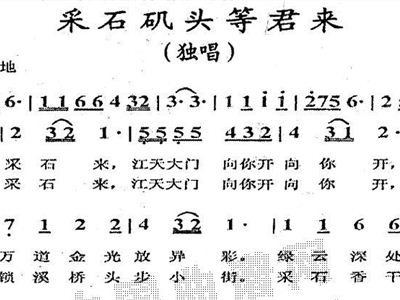 采石矶头等君来
（独唱）
地
6· | 1 1 6 6 4 3 2 | 3· 3· | 1 1 | 2 7 5 6· | 6·
2 3 2 1 · | 5 5 5 5 4 3 2 4 3 1 2 ·
采 石 来，江天大门 向你开 向 你 开，
采 石 来，江天大门 向你开 向 你 开，
7 1 2 2 4 3 2 · | 1 6 6
万 道 金 光 放 异 彩。绿 云 深 处
锁 溪 桥 头 步 小 街。采 石 香 干